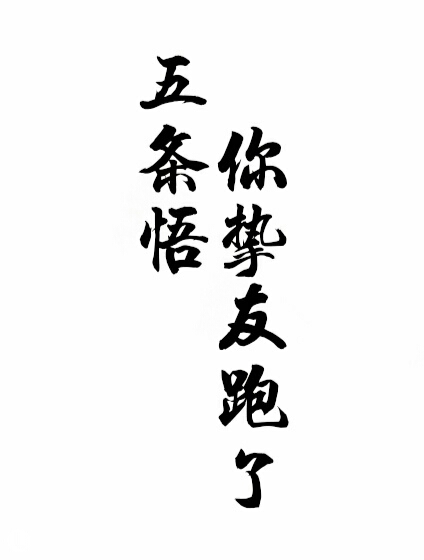 五条悟
你挚友跑了